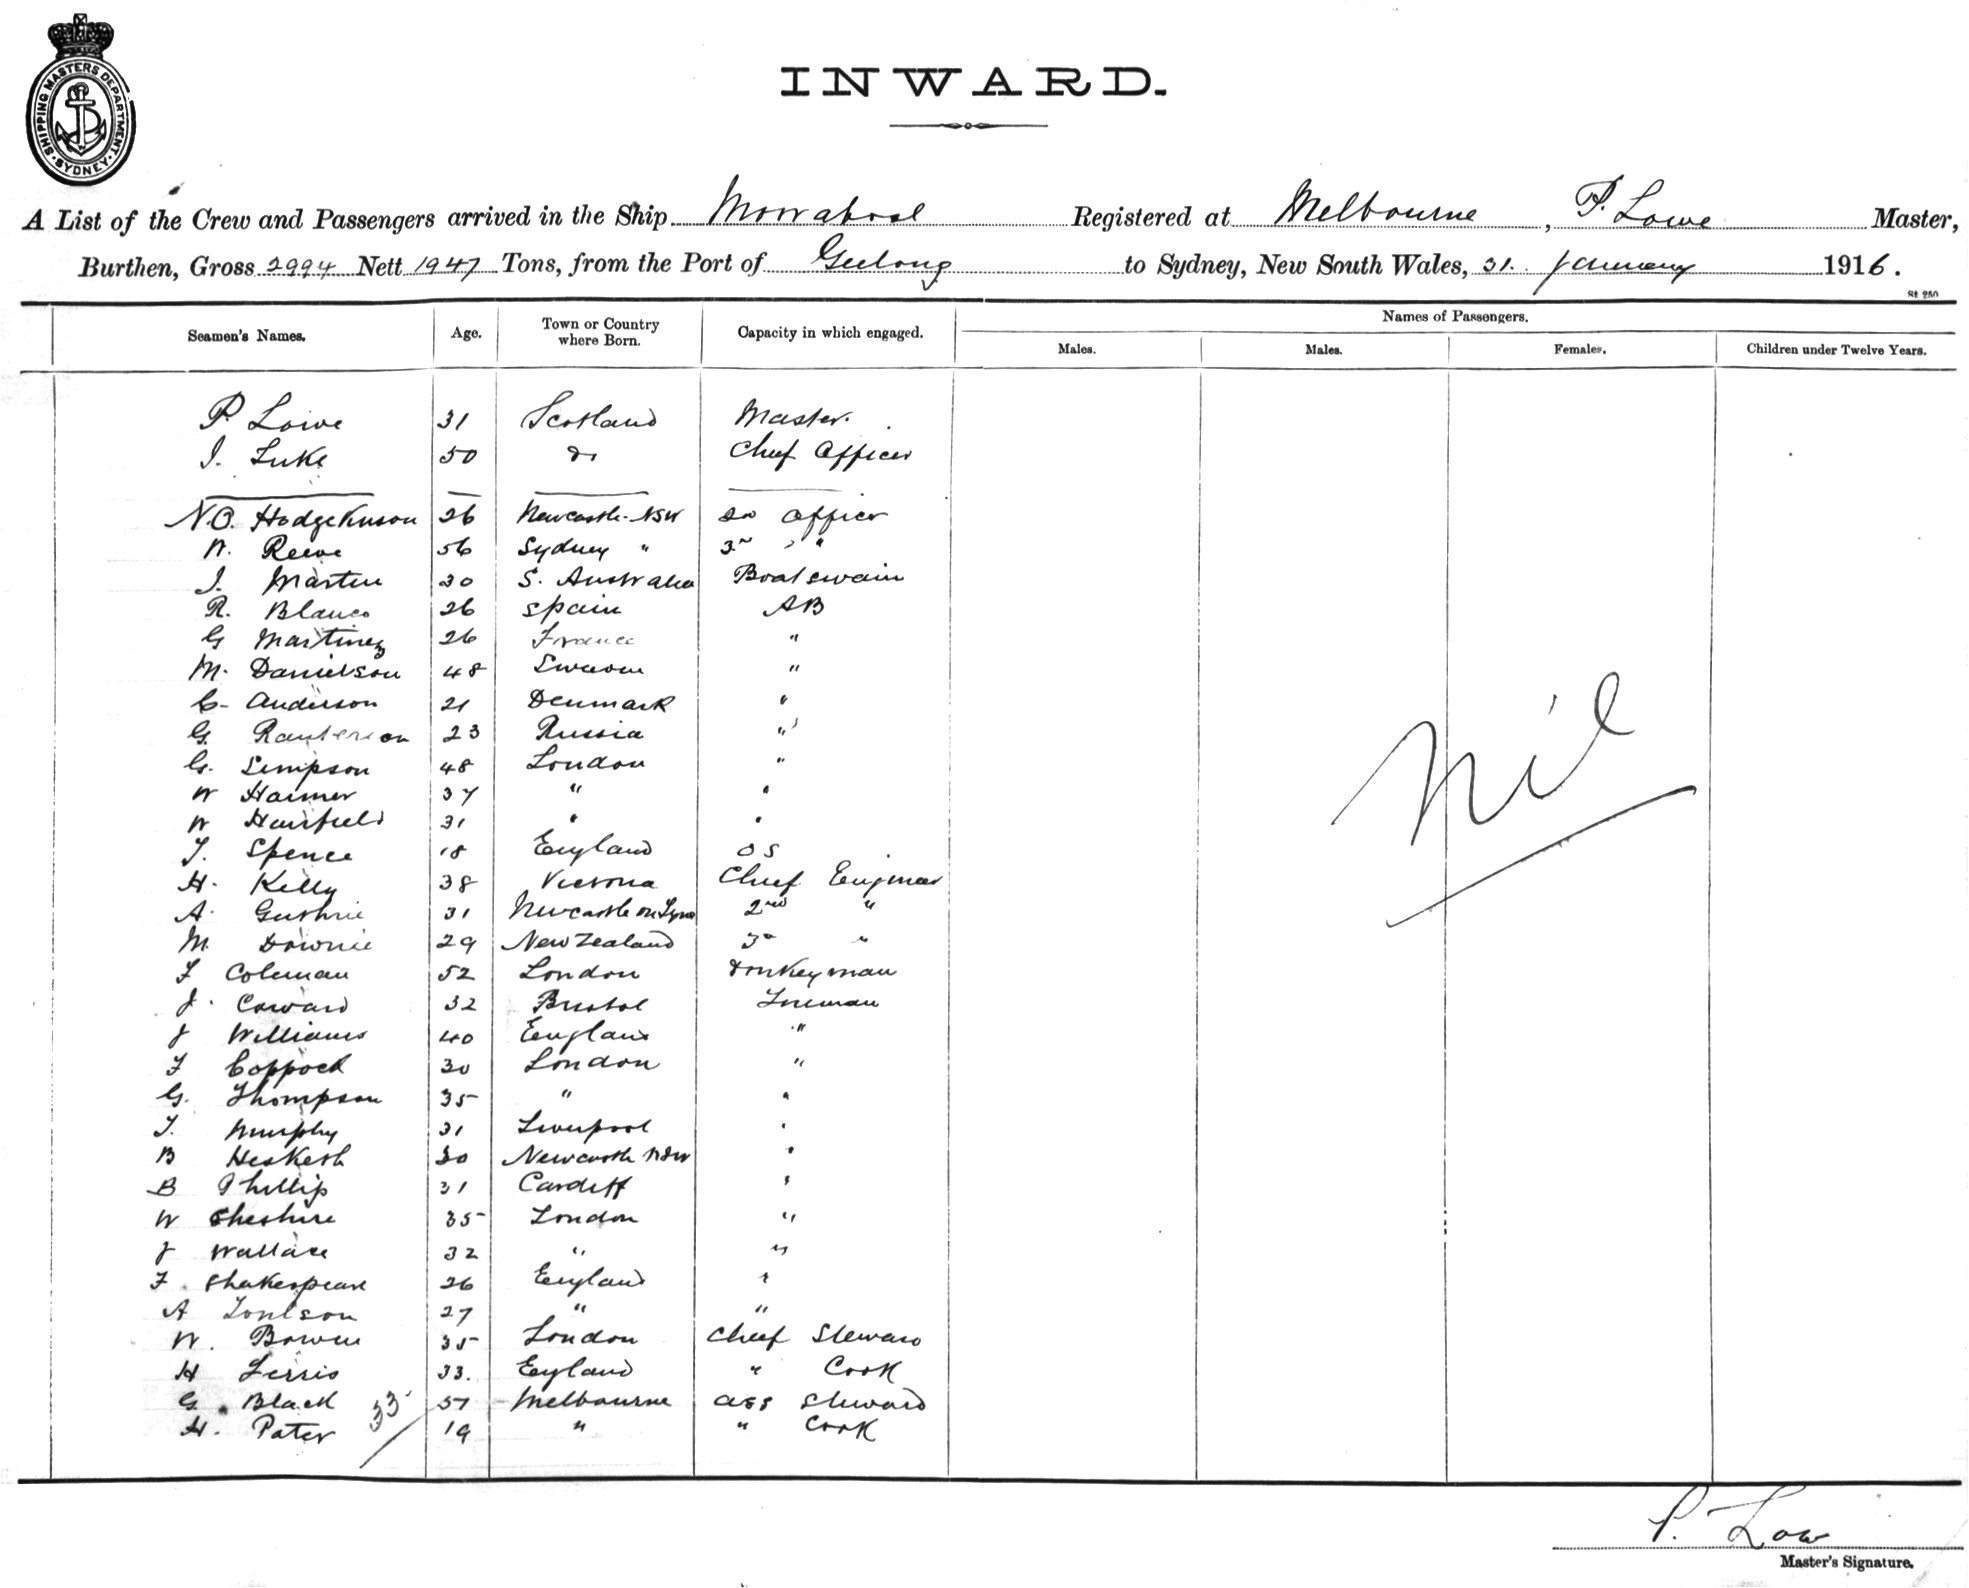 SHIPPING MASTERS DEPARTMENT
SYDNEY
INWARD.
A List of the Crew and Passengers arrived in the Ship Moorabool Registered at Melbourne, P. Lowe Master,
Burthen, Gross 2994 Nett 1947 Tons, from the Port of Geelong to Sydney, New South Wales, 31. January 1916.
St 250
Seamen's Names. Age. Town or Country where Born. Capacity in which engaged. Names of Passengers.
Males. Males. Females. Children under Twelve Years.
P. Lowe 31 Scotland Master.
J. Luke 50 do Chief Officer
N.O. Hodgekinson 26 Newcastle. NSW 2nd Officer
W. Reeve 56 Sydney " 3rd "
J. Martin 30 S. Australia Boatswain
R. Blanco 26 Spain AB
G Martinez 26 France "
M. Danielson 48 "
C. Anderson 21 Denmark "
G. 23 Russia "
G. Simpson 48 London "
W Harmer 37 " "
W Hairfield 31 " "
T. Spence 18 England OS
H. Kelly 38 Victoria Chief Engineer
A. Guthrie 31 Newcastle on Tyne 2nd "
M. Downie 29 New Zealand 3rd "
F Coleman 52 London Donkeyman
J. Coward 32 Bristol Fireman
J Williams 40 England "
F Coppock 30 London "
G. Thompson 35 " "
T. Murphy 31 Liverpool "
B Hesketh 30 Newcastle NSW "
B Phillip 31 Cardiff "
W Cheshire 35 London "
J Wallace 32 " "
F. Shakespeare 26 England "
A Toulson 27 " "
W. Bowen 35 London Chief Steward
H Ferris 33. England " Cook
G. Black 57 Melbourne Ass Steward
H. Pater 19 " " Cook
33
Nil
P. Low
Master's Signature.